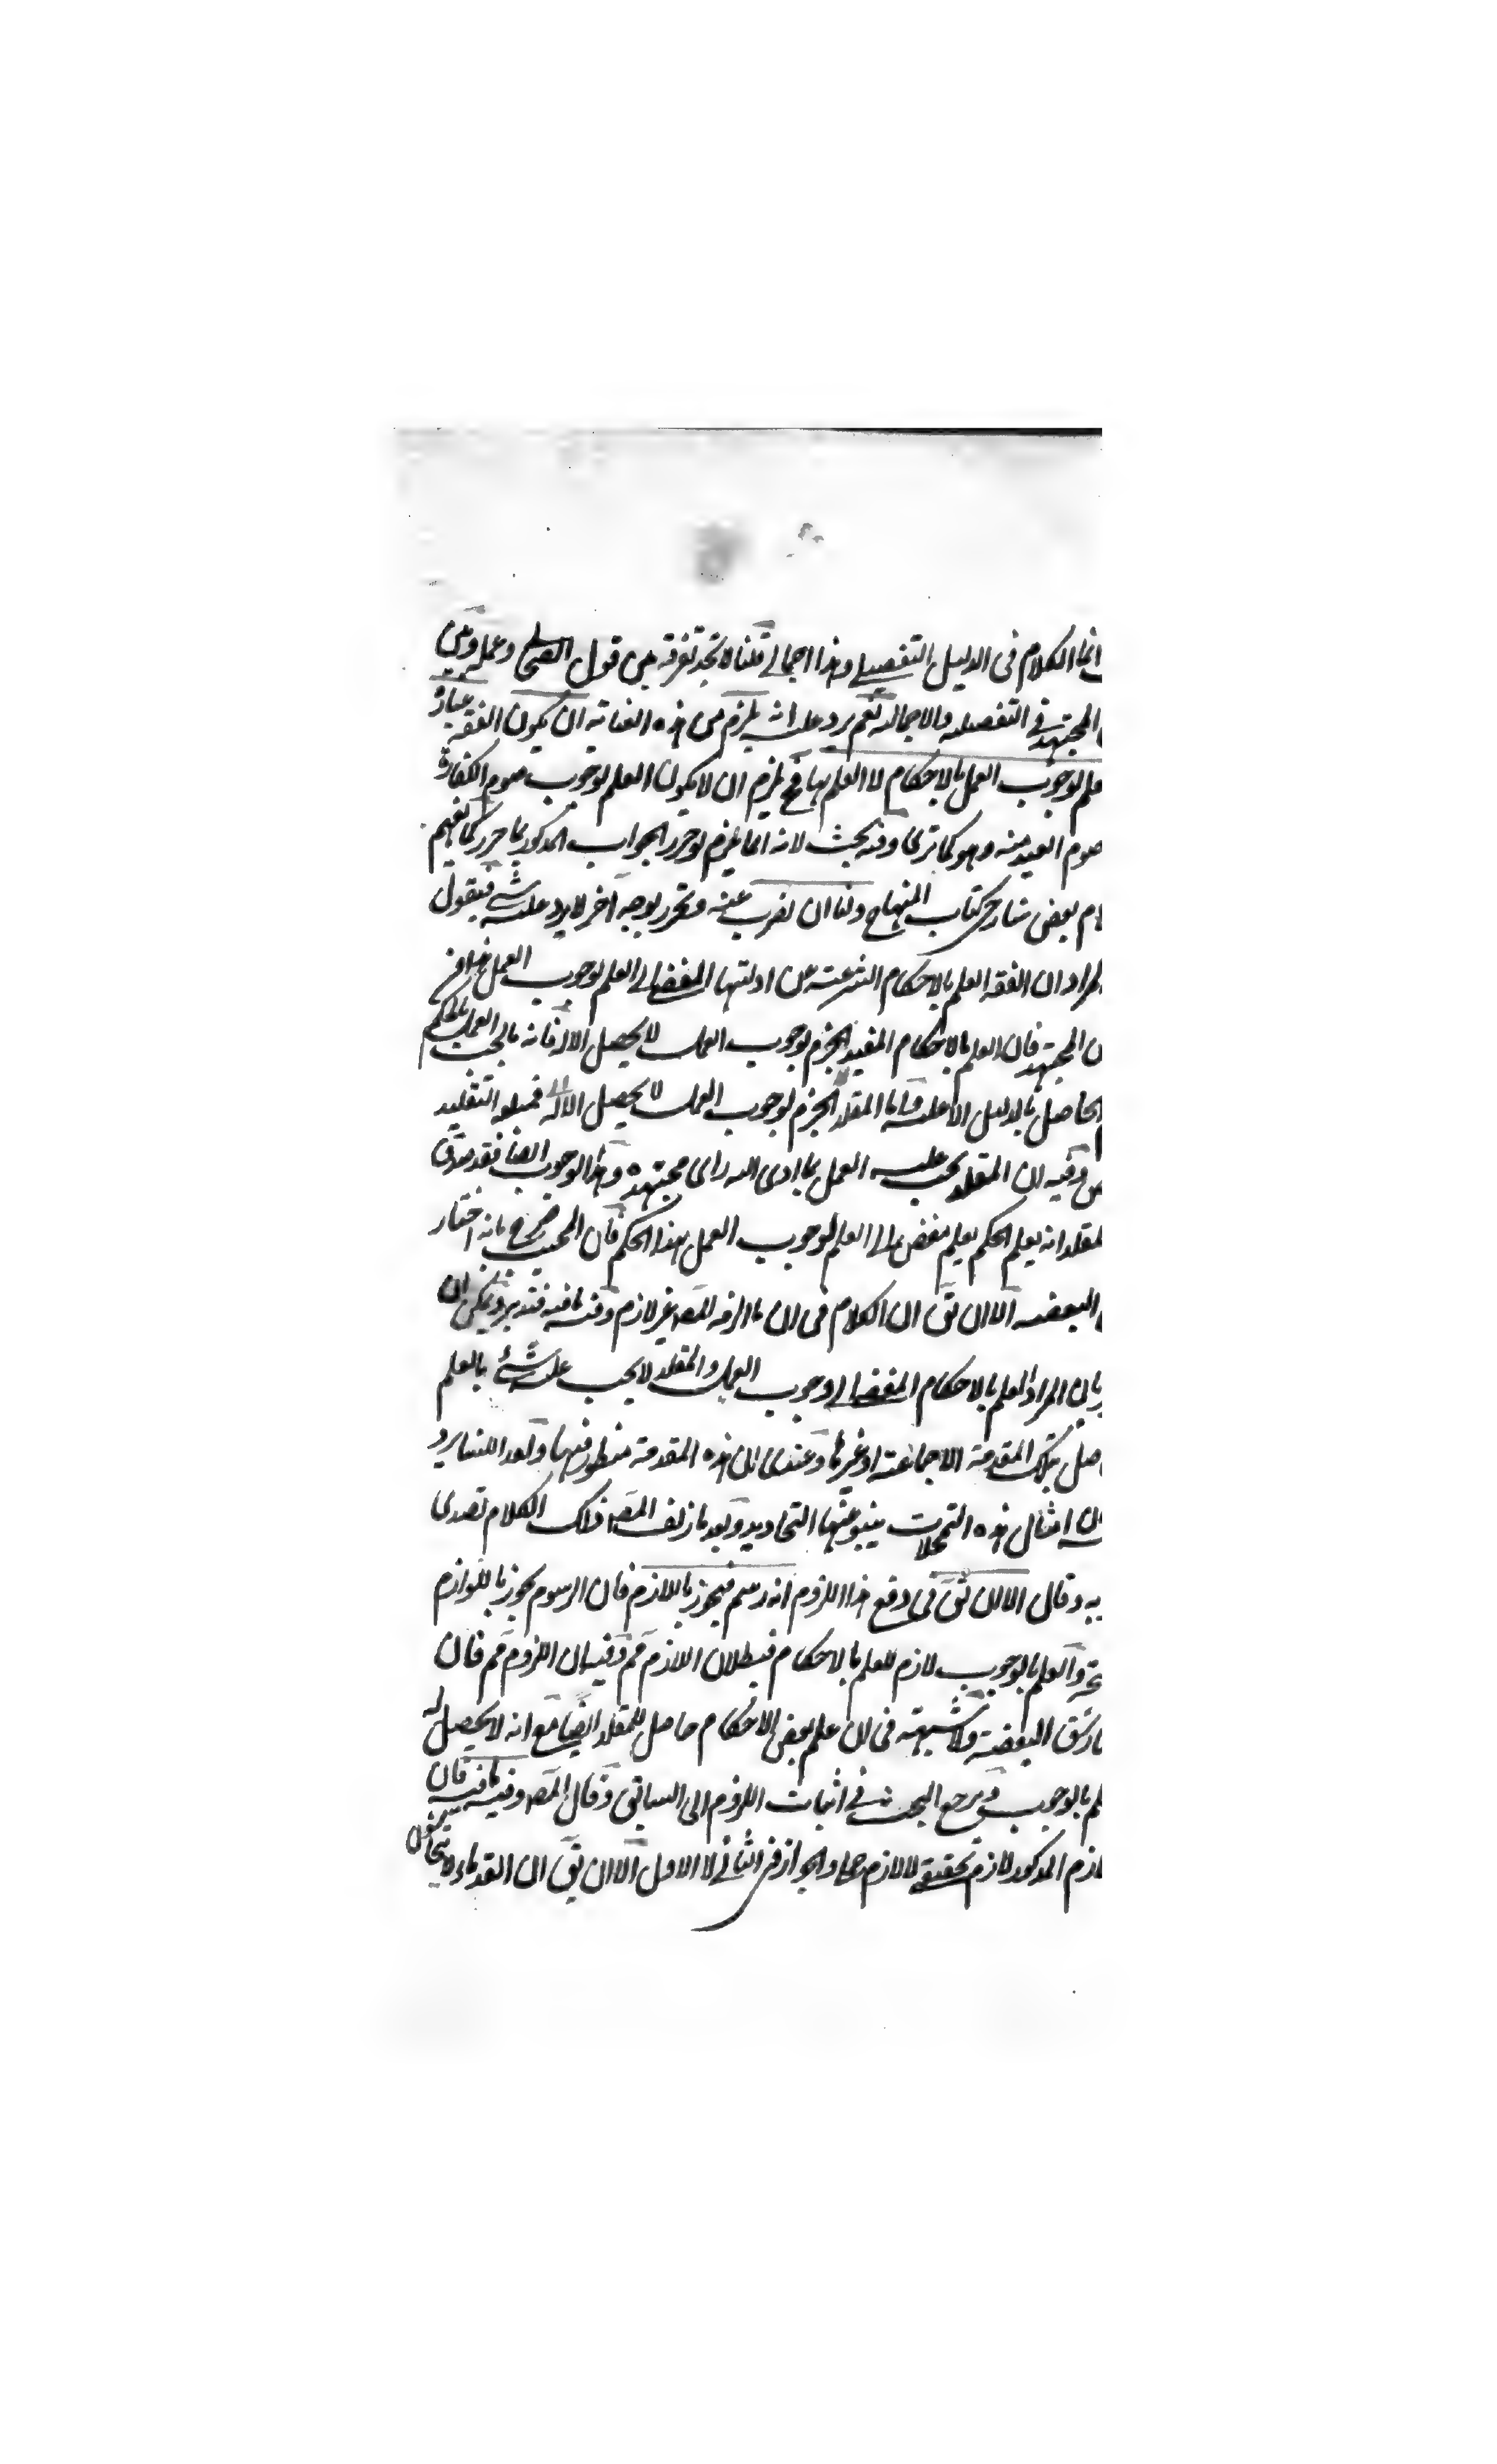 انما الكلام فى الدليل التفصيلے وهذا اجمالے قلنا لا تجد تفرقة بين قول الصحابى وعمله وبين
المجتهد فے التفصيليه والاجماليه نعم يرد عليه انه يلزم من هذه العناية ان يكون الفقه عبارة
علم بوجوب العمل بالاحكام لا العلم بها فح يلزم ان لا يكون العلم بوجوب صوم الكفارة
صوم العيد منه وهو كما ترى وفيه بحث لانه انما يلزم لو حرر الجواب المذكور بما حرر كما يفهم
بعض شارحى كتاب المنهاج ولنا ان نضرب عنه ونحرر بوجه اخر لا يرد عليه شئے فيقول
المراد ان الفقه العلم بالاحكام الشرعية عن ادلتها المفضے الى العلم بوجوب العمل
المجتهد فان العلم بالاحكام المفيد الجزم بوجوب العمل لا يحصل الا له فانه ما لم يجب العمل بالحكم
الحاصل بالدليل الا عليه واما المقلد الجزم بوجوب العمل لا يحصل الا له التقليد
وفيه ان المقلد يجب عليه العمل بما ادى اليه راى مجتهده وهذا الوجوب ايضا فقد صدق
المقلد انه يعلم الحكم بعلم مفض له الى العلم بوجوب العمل بهذا الحكم فان المجيب صرح بانه اختار
البعضيه الا ان يق ان الكلام فى ان ما الزمه المص غير لازم وفيه ما فيه فتدبر ويمكن ان
بان المراد العلم بالاحكام المفضے الى وجوب العمل والمقلد لا يجب عليه شئے بالعلم
تلك المقدمة الاجماعية او غيرها وعندى ان هذه المقدمة منظور فيها وبعد اللتيا يرد
ان امثال هذه التمحلات ينبو عنها التحاديد وبعد ما زيف المص ذلك الكلام تصدى
به وقال الا ان يق فى دفع هذا اللزوم انه رسم فيجوز باللازم فان الرسوم يجوز باللوازم
والعلم بالوجوب لازم للعلم بالاحكام فبطلان اللازم مم وفيه ان اللزوم مم فان
شق البعضية ولا شبهة فى ان علم بعض الاحكام حاصل للمقلد ايضا مع انه لا يحصل له
بالوجوب ويرجع البحث فے اثبات اللزوم الى السابق وقال المص وفيه ما فيه فان
اللازم المذكور لازم تحقيقے لا لازم حملا والجواز فى الثانے لا الاول الا ان يق ان القدماء لا يتحاشون